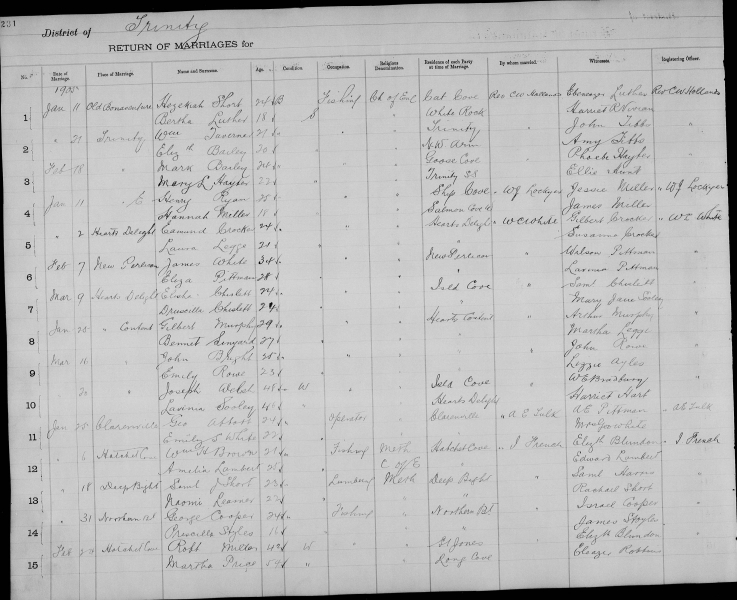 231
District of Trinity
RETURN OF MARRIAGES for
No. Date of Marriage. Place of Marriage. Name and Surname. Age. Condition. Occupation. Religious Denomination. Residence of each Party at time of Marriage. By whom married. Witnesses. Registering Officer.
1905
Jan 11 Old Bonaventure Hezekiah Short 24 B Fishing Ch of Eng Cat Cove Rev C W Hollands Ebenezer Luther Rev C W Hollands
1 Bertha Luther 18 S " " White Rock Harriet R Vivian
" 21 Trinity Wm Taverner 21 " " Trinity " John Tibbs "
2 Eliz th Bailey 20 " " N.W. Arm Amy Tibbs
Feb 18 " Mark Bailey 24 " " Goose Cove " Phoebe Hayter "
3 Mary L Hayter 22 " " Trinity S.S Ellie
Jan 11 " E Henry Ryan 25 " " Ship Cove " W J Lockyer Jessie Miller " W J Lockyer
4 Hannah Miller 18 " " Salmon Cove James Miller
" 2 Hearts Delight Edmund Crocker 24 " " Hearts Delight " W C White Gilbert Crocker " W C White
5 Laura Legge 21 " " " Susanna Crocker
Feb 7 New Perlican James White 34 " " New Perlican " Wilson Pittman "
6 Eliza Pittman 28 " " " Lavinia Pittman
Mar 9 Hearts Delight Elisha Chislett 24 " " Isld Cove " Saml Chislett "
7 Drusilla Chislett 24 " " " Mary Jane Sooley
Jan 25 " Content Gilbert Murphy 29 " " Hearts Content " Archer Murphy "
8 Bennet Sinyard 27 " " " Martha Legge
Mar 16 " John Bright 25 " " " " John Rowe "
9 Emily Rowe 23 " " " Lizzie Ayles
" 20 " Joseph Welsh 48 W " " Isld Cove " W E Bradbury "
10 Lavinia Sooley " " Hearts Delight Harriet Hart
Jan 25 Clarenville Geo Abbott 24 Operator " Clarenville " A E Tulk A E Pittman " A E Tulk
11 Emily S White 22 " " " White
" 6 Hatchet Cove Wm H Brown 21 Fishing Meth Hatchet Cove " I French Elizth Blundon " I French
12 Amelia Lambert 25 " C of E " Edward Lambert
" 18 Deep Bight Saml Short 23 Lumbering Meth Deep Bight " Saml "
13 Naomi Leamer 22 " " " Rachael Short
" 31 Northern Bt George Cooper 24 Fishing " Northern Bt " Israel Cooper "
14 Priscilla Styles " " " James
Feb 22 Hatchet Cove Robt Miller 42 W " " St Jones " Elizth Blundon "
15 Martha Price " " Long Cove Eleazer